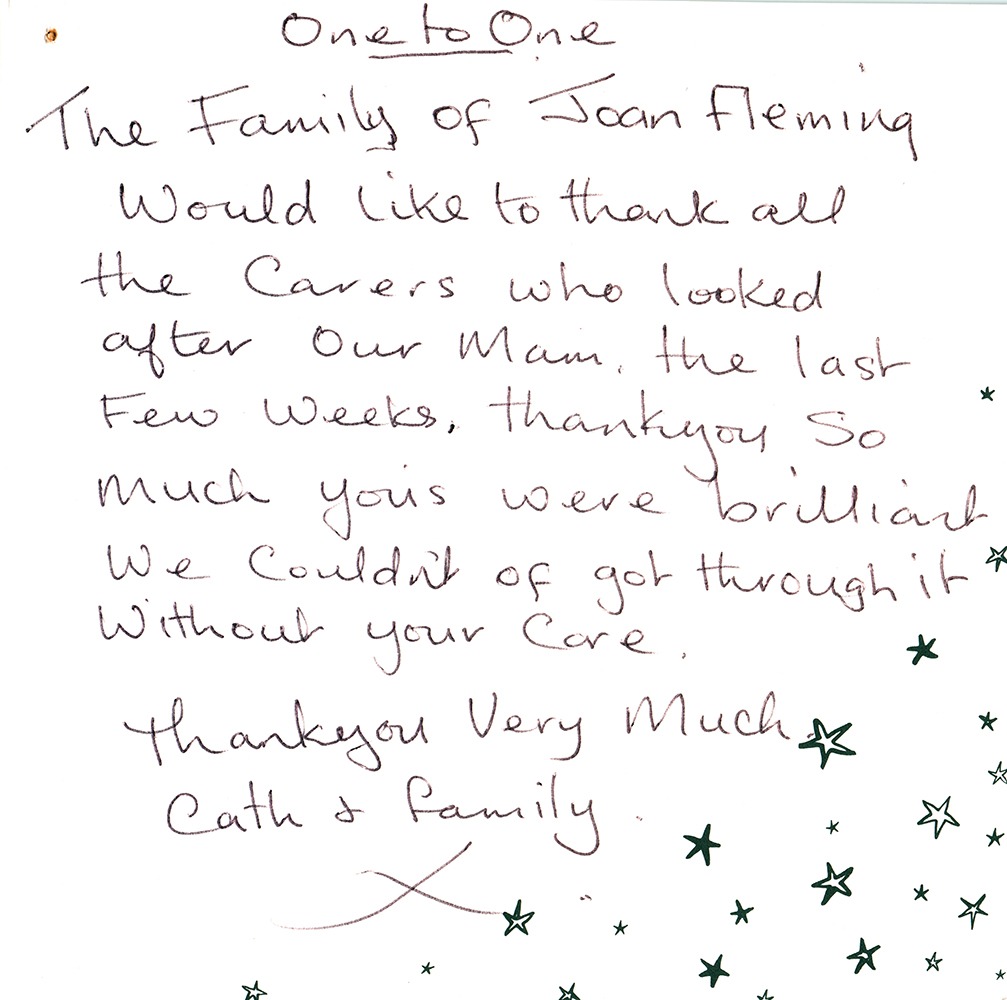 One to One
The Family of Joan Fleming
Would like to thank all
the Carers who looked
after Our Mam. the last
Few Weeks. thankyou So
much yous were brilliant
We Couldn't of got through it
Without your Care.
thankyou Very Much.
Cath & family.
X